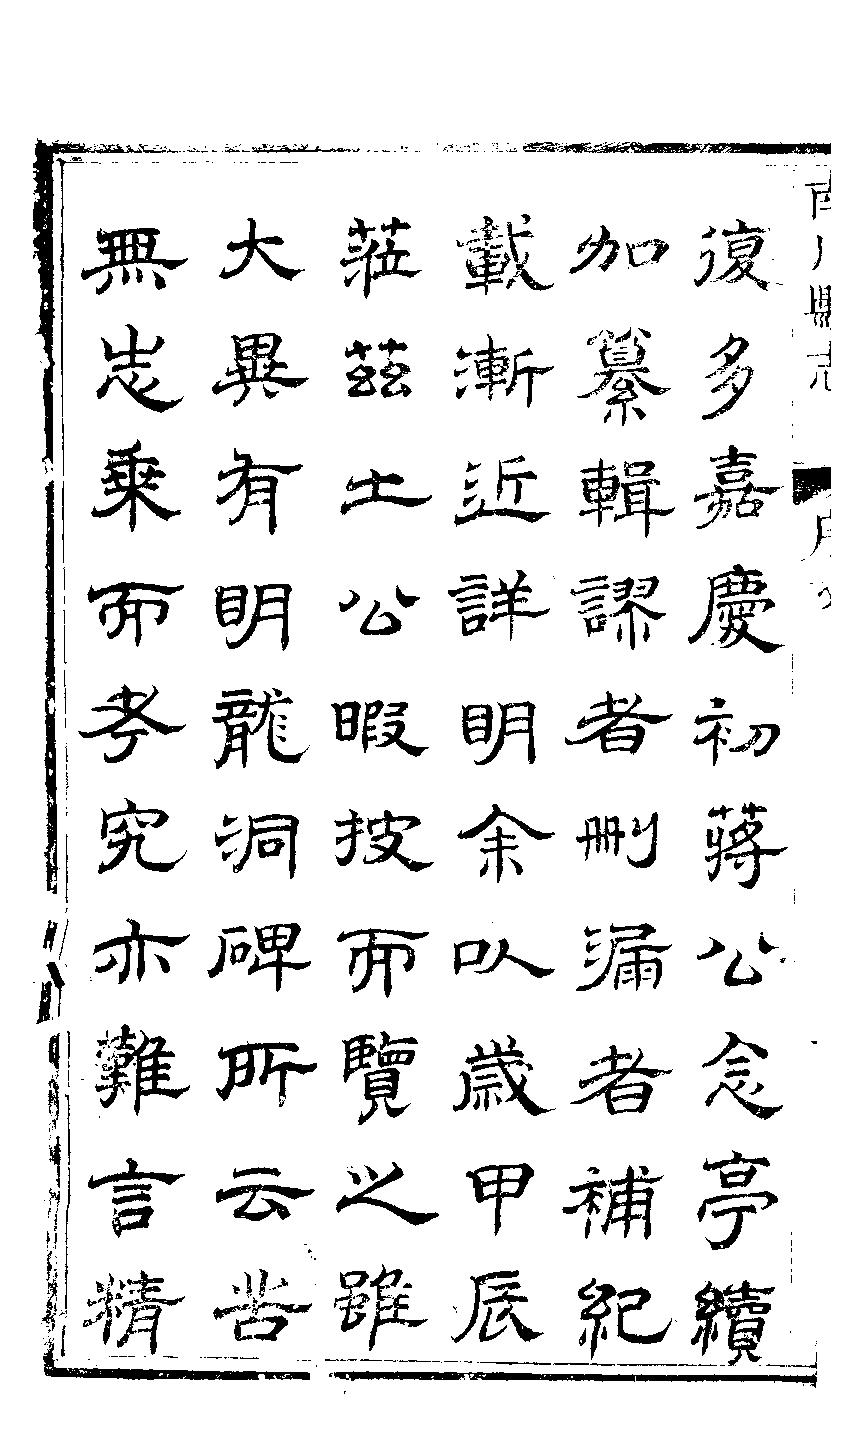 復多嘉慶初蔣公念亭續
加纂輯謬者刪漏者補紀
載漸近詳明余以歲甲辰
蒞茲土公暇披而覽之雖
大異有明龍洞碑所云苦
無志乗而考究亦難言精